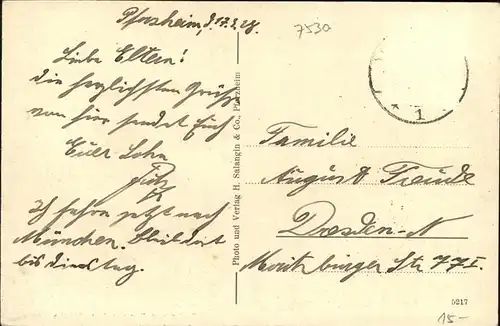 Pforzheim, d. 17.3.28.
Liebe Eltern!
die herzlichsten Grüße
von hier sendet Euch
Euer Sohn
Fritz
Ich fahre jetzt nach
München. bleibe dort
bis Dienstag.
Photo und Verlag H. Salangin & Co., Pforzheim
7530
* 1
Familie
August
Dresden-N
Moritzburger Str 77 I.
5217
15-